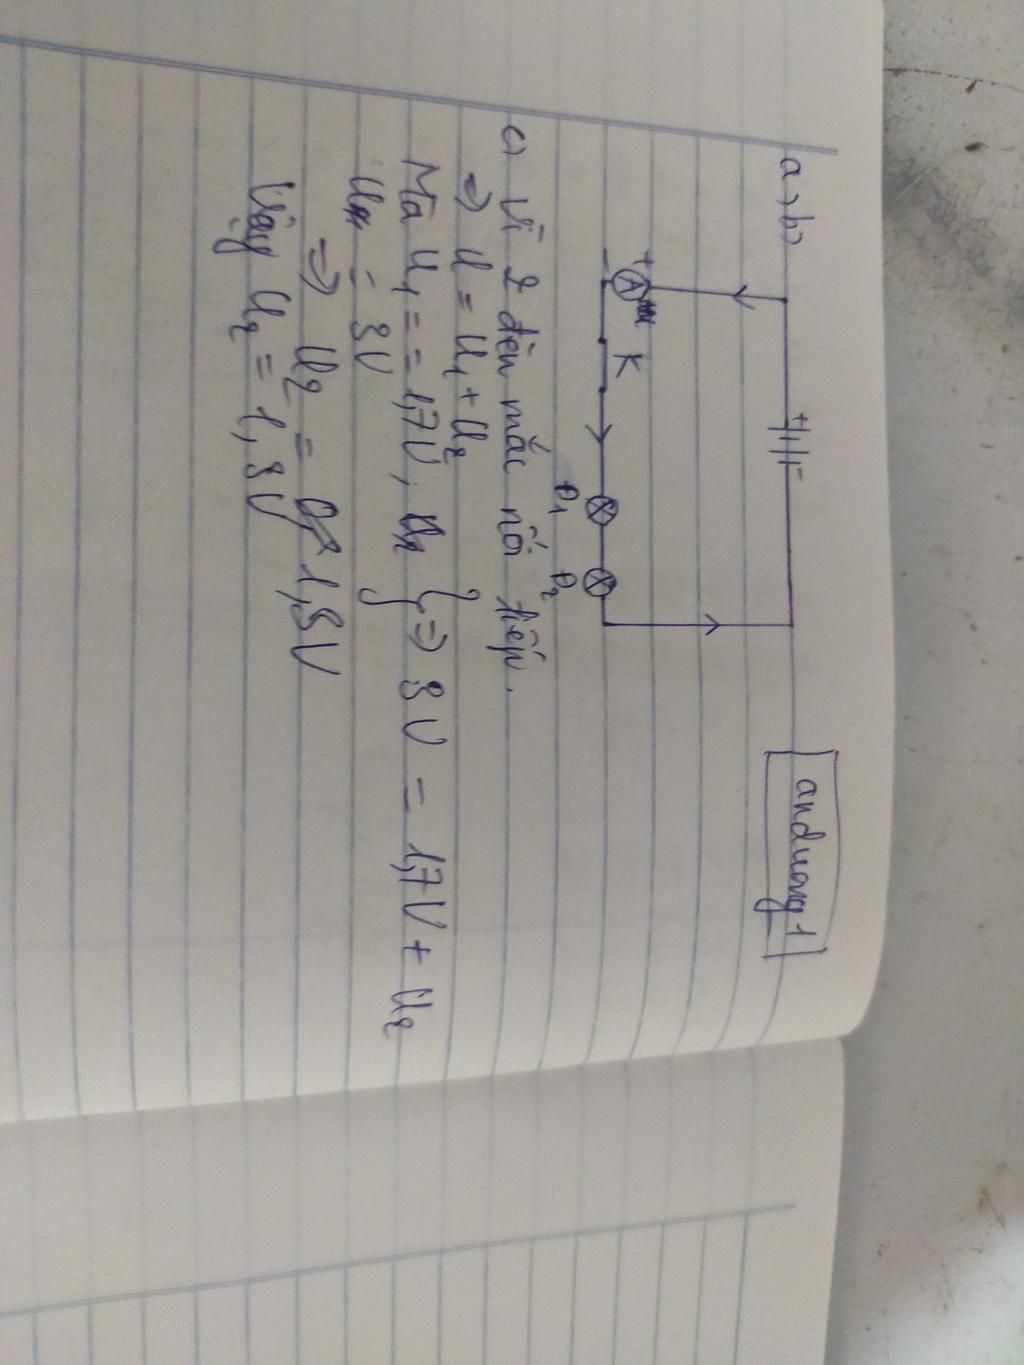 a, b,
anduong1
+ -
+ A -
K
Đ1 Đ2
c) Vì 2 đèn mắc nối tiếp.
=> U = U1 + U2
Mà U1 = = 1,7V, } => 3V = 1,7V + U2
U = 3V
=> U2 = 1,3V
Vậy U2 = 1,3V